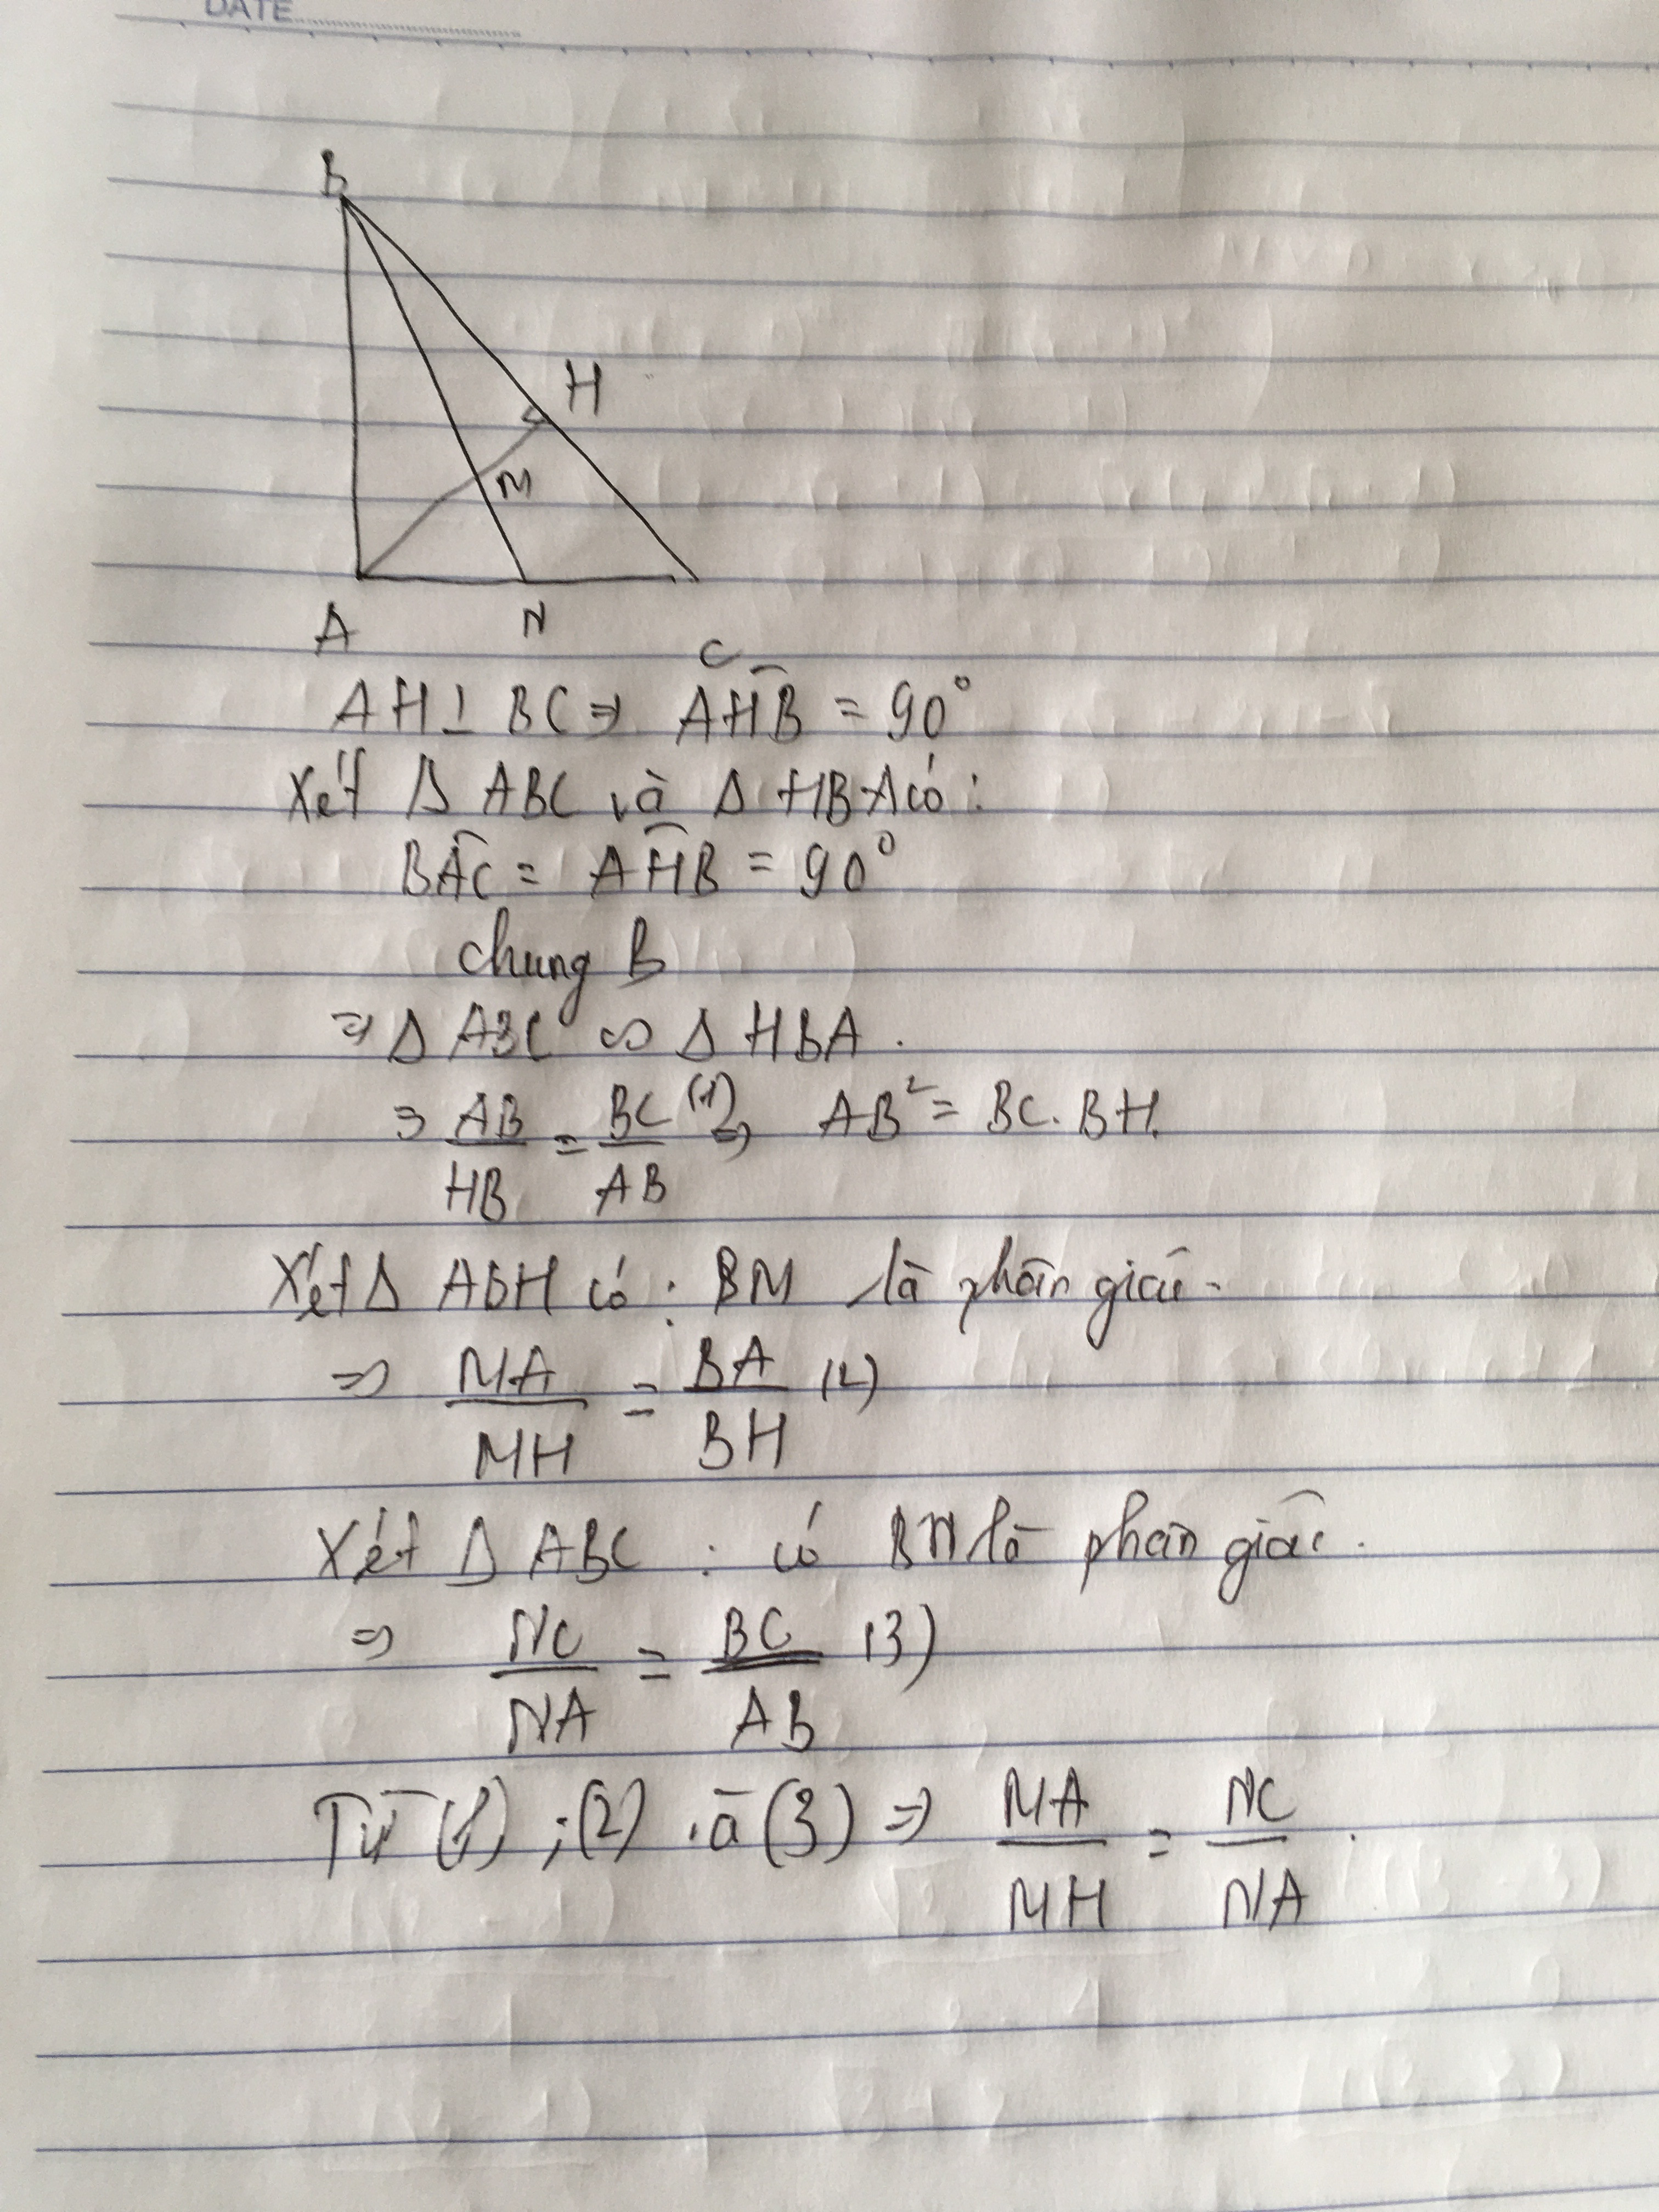 DATE
B
H
M
A N
C
AH ⊥ BC ⇒ AHB = 90°
Xét Δ ABC và Δ HBA có :
BAC = AHB = 90°
chung B
⇒ Δ ABC ∽ Δ HBA .
⇒ AB/HB = BC/AB (1) ⇒ AB² = BC . BH.
Xét Δ ABH có : BM là phân giác
⇒ MA/MH = BA/BH (2)
Xét Δ ABC : có BN là phân giác .
⇒ NC/NA = BC/AB (3)
Từ (1) ; (2) và (3) ⇒ MA/MH = NC/NA .